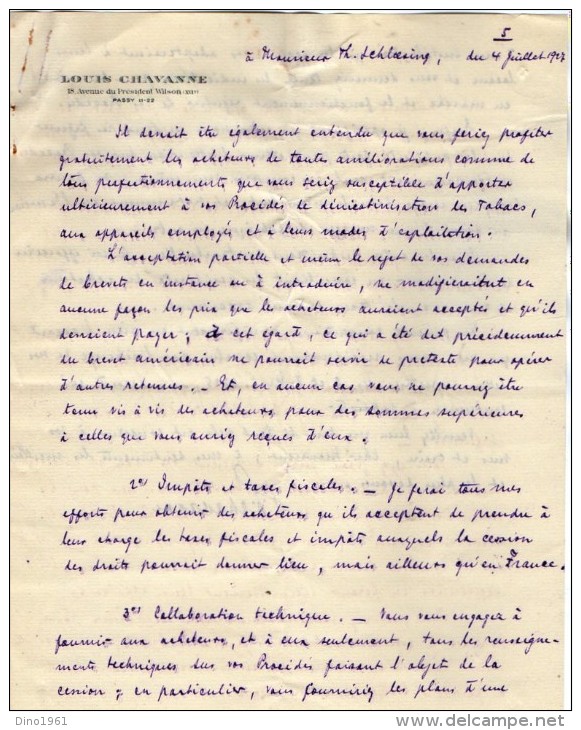 5
à Monsieur Th. Schloesing, du 4 Juillet 1927
LOUIS CHAVANNE
18 Avenue du Président Wilson (XVIe)
PASSY 11-22
Il devait être également entendu que vous feriez profiter
gratuitement les acheteurs de toutes améliorations comme de
tous perfectionnements que vous seriez susceptible d'apporter
ultérieurement à vos Procédés de dénicotinisation des Tabacs,
aux appareils employés et à leurs modes d'exploitation.
L'acceptation partielle et même le rejet de vos demandes
de brevets en instance ou à introduire, ne modifieraient en
aucune façon les prix que les acheteurs auraient acceptés et qu'ils
devraient payer; à cet égard, ce qui a été dit précédemment
du brevet américain ne pourrait servir de prétexte pour opérer
d'autres retenues. _ Et, en aucun cas, vous ne pourriez être
tenu vis à vis des acheteurs pour des sommes supérieures
à celles que vous auriez reçues d'eux.
2es Impôts et taxes fiscales. _ Je ferai tous mes
efforts pour obtenir des acheteurs qu'ils acceptent de prendre à
leur charge les taxes fiscales et impôts auxquels la cession
des droits pourrait donner lieu, mais ailleurs qu'en France.
3es Collaboration technique. _ Vous vous engagez à
fournir aux acheteurs, et à eux seulement, tous les renseigne-
ments techniques sur vos Procédés faisant l'objet de la
cession; en particulier, vous fournirez les plans d'une
Dino1961